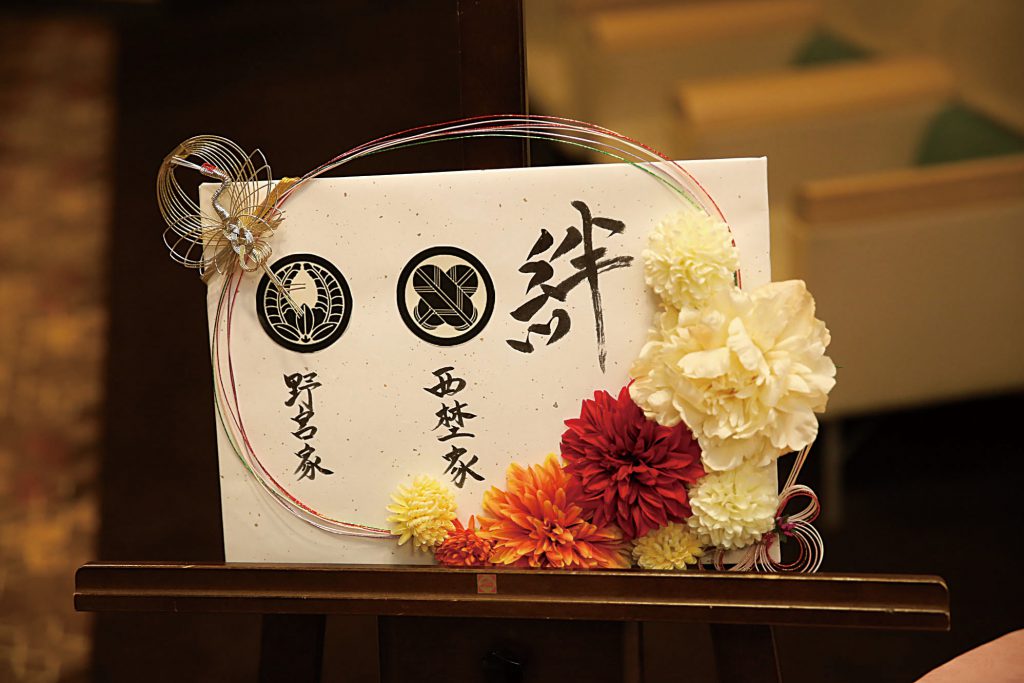 絆
西埜家
野呂家